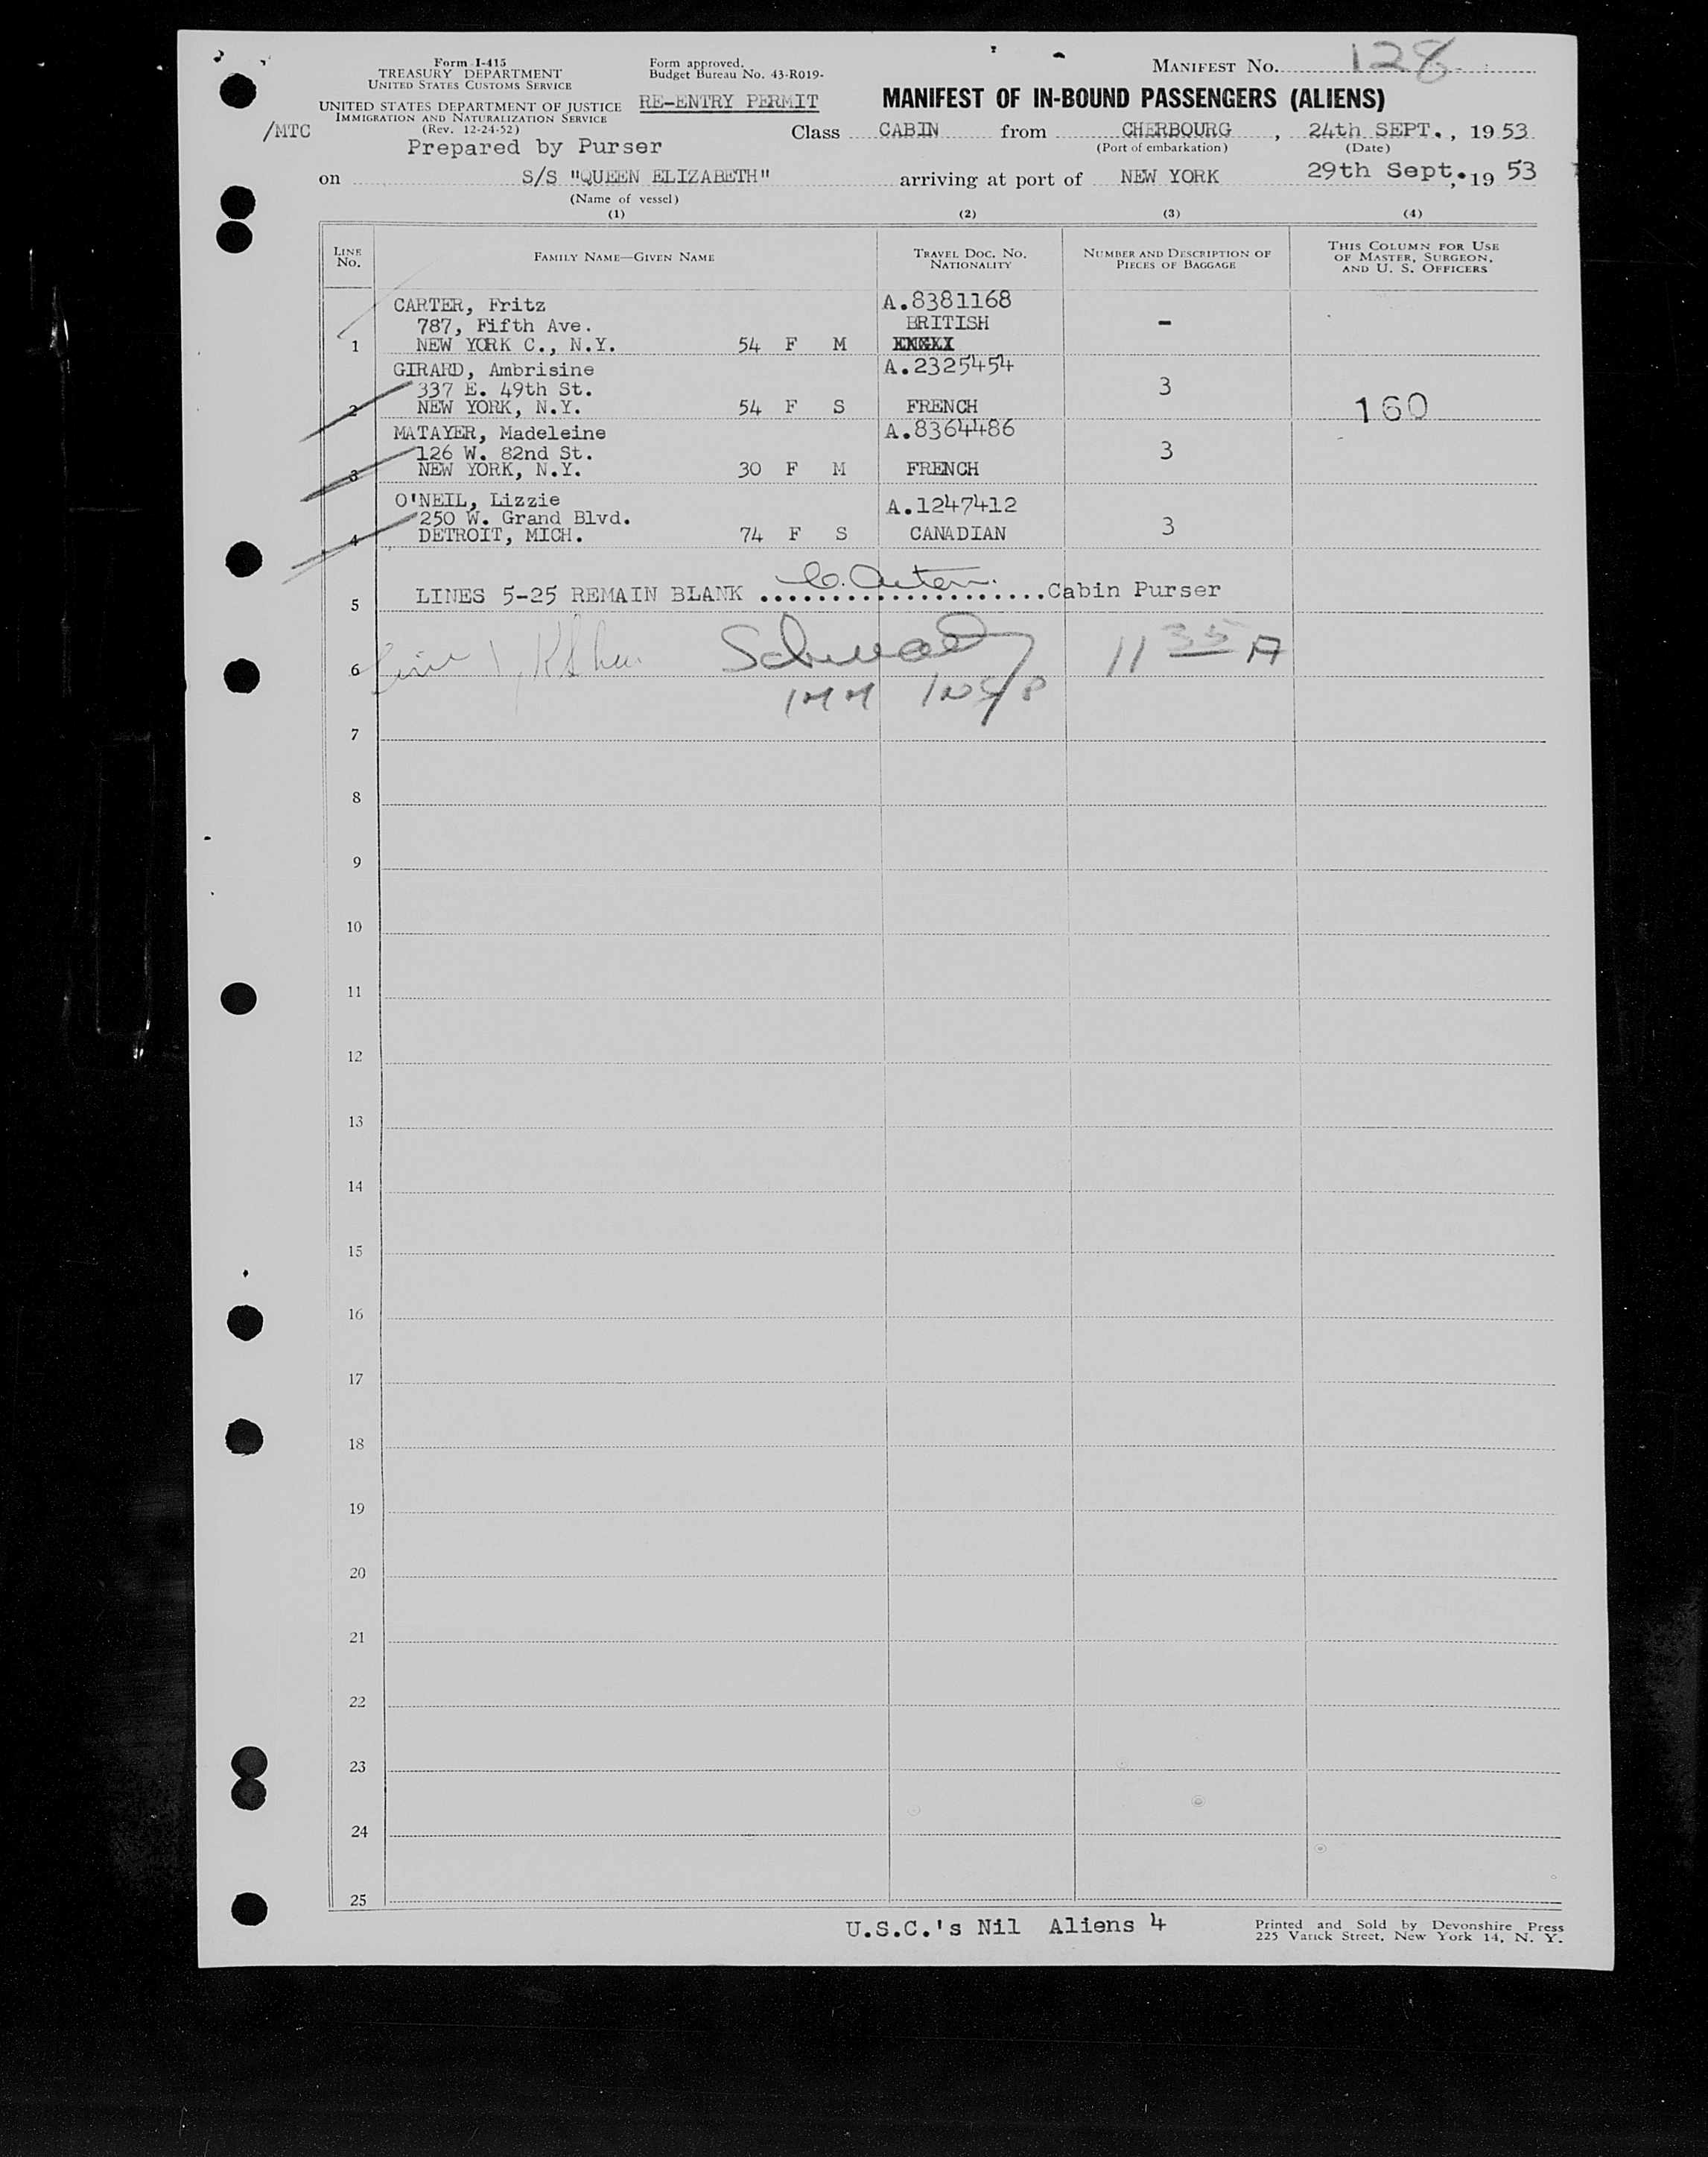 Form I-415
TREASURY DEPARTMENT
UNITED STATES CUSTOMS SERVICE
UNITED STATES DEPARTMENT OF JUSTICE
IMMIGRATION AND NATURALIZATION SERVICE
(Rev. 12-24-52)
/MTC
Prepared by Purser
Form approved.
Budget Bureau No. 43-R019-
RE-ENTRY PERMIT
MANIFEST NO. 128
MANIFEST OF IN-BOUND PASSENGERS (ALIENS)
Class CABIN from CHERBOURG, 24th SEPT., 1953
(Port of embarkation) (Date)
on S/S "QUEEN ELIZABETH" arriving at port of NEW YORK 29th Sept., 1953
(Name of vessel)
(1) (2) (3) (4)
LINE NO. FAMILY NAME—GIVEN NAME TRAVEL DOC. NO. NATIONALITY NUMBER AND DESCRIPTION OF PIECES OF BAGGAGE THIS COLUMN FOR USE OF MASTER, SURGEON, AND U. S. OFFICERS
CARTER, Fritz A.8381168
787, Fifth Ave. BRITISH -
1 NEW YORK C., N.Y. 54 F M
GIRARD, Ambrisine A.2325454
337 E. 49th St. 3
2 NEW YORK, N.Y. 54 F S FRENCH 160
MATAYER, Madeleine A.8364486
126 W. 82nd St. 3
3 NEW YORK, N.Y. 30 F M FRENCH
O'NEIL, Lizzie A.1247412
250 W. Grand Blvd. 3
4 DETROIT, MICH. 74 F S CANADIAN
5 LINES 5-25 REMAIN BLANK .....................Cabin Purser
6 11 35 A
IMM INSP
7
8
9
10
11
12
13
14
15
16
17
18
19
20
21
22
23
24
25
U.S.C.'s Nil Aliens 4
Printed and Sold by Devonshire Press
225 Varick Street, New York 14, N. Y.